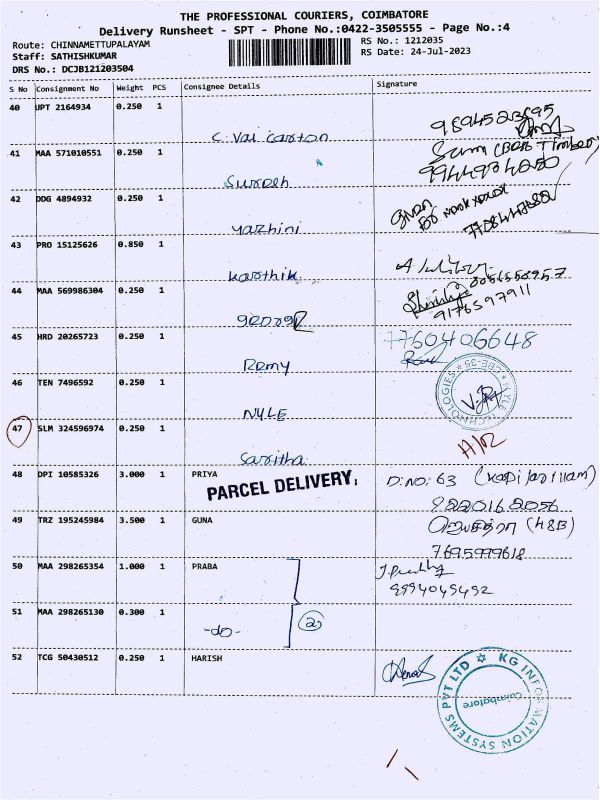 THE PROFESSIONAL COURIERS, COIMBATORE
Delivery Runsheet - SPT - Phone No.:0422-3505555 - Page No.:4
Route: CHINNAMETTUPALAYAM
RS No.: 1212035
Staff: SATHISHKUMAR
RS Date: 24-Jul-2023
DRS No.: DCJB121203504
S No Consignment No Weight PCS Consignee Details Signature
40 UPT 2164934 0.250 1
C. Val Carton
41 MAA 571010551 0.250 1
Suresh
9944934250
42 DDG 4894932 0.250 1
Given
Yazhini
43 PRO 15125626 0.850 1
Karthik
8056556957
44 MAA 569986304 0.250 1
9176597911
George
45 HRD 20265723 0.250 1
7760406648
Remy
46 TEN 7496592 0.250 1
NYLE TECHNOLOGIES CBE-35
NYLE
47 SLM 324596974 0.250 1
Saritha
48 DPI 10585326 3.000 1 PRIYA
D.NO: 63
PARCEL DELIVERY.
9220162056
49 TRZ 195245984 3.500 1 GUNA
ஜெயசுதா (H&B)
7695999618
50 MAA 298265354 1.000 1 PRABA
9994049492
51 MAA 298265130 0.300 1
-do-
2
52 TCG 50430512 0.250 1 HARISH
KG INFORMATION SYSTEMS PVT LTD
Coimbatore